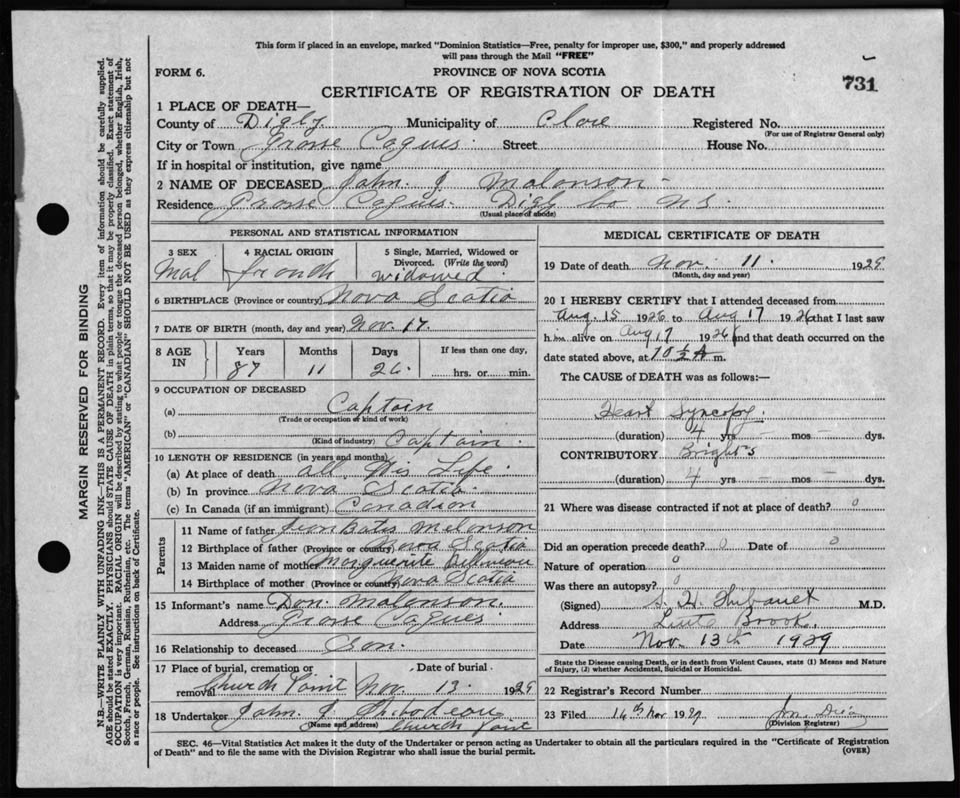 This form if placed in an envelope, marked "Dominion Statistics—Free, penalty for improper use, $300," and properly addressed
will pass through the Mail "FREE"
FORM 6.
PROVINCE OF NOVA SCOTIA
731
CERTIFICATE OF REGISTRATION OF DEATH
1 PLACE OF DEATH—
County of Digby Municipality of Clare Registered No.
(For use of Registrar General only)
City or Town Grosse Coques Street House No.
If in hospital or institution, give name
2 NAME OF DECEASED John. J Malonson
Residence Grosse Coques. Digby Co N.S.
(Usual place of abode)
PERSONAL AND STATISTICAL INFORMATION
3 SEX Mal
4 RACIAL ORIGIN french
5 Single, Married, Widowed or Divorced. (Write the word) widowed.
6 BIRTHPLACE (Province or country) Nova Scotia
7 DATE OF BIRTH (month, day and year) Nov. 17.
8 AGE IN Years Months Days If less than one day,
87 11 26. hrs. or min.
9 OCCUPATION OF DECEASED
(a) Captain
(Trade or occupation or kind of work)
(b) Captain.
(Kind of industry)
10 LENGTH OF RESIDENCE (in years and months)
(a) At place of death all His Life.
(b) In province Nova Scotia.
(c) In Canada (if an immigrant) Canadian
Parents
11 Name of father Melonson
12 Birthplace of father (Province or country) Nova Scotia
13 Maiden name of mother Marguerite
14 Birthplace of mother (Province or country) Nova Scotia
15 Informant's name Don. Malonson.
Address Grosse Coques
16 Relationship to deceased Son.
17 Place of burial, cremation or removal Church Point Date of burial Nov. 13. 1929
18 Undertaker John. J. Thibodeau
(Name and address) Church Point
MEDICAL CERTIFICATE OF DEATH
19 Date of death Nov. 11. 1929
(Month, day and year)
20 I HEREBY CERTIFY that I attended deceased from
Aug. 15 1926 to Aug 17 1926 that I last saw
him alive on Aug 17 1926 and that death occurred on the
date stated above, at 10½ A m.
The CAUSE of DEATH was as follows:—
Heart Syncope.
(duration) 4 yrs – mos – dys.
CONTRIBUTORY Brights
(duration) 4 yrs – mos – dys.
21 Where was disease contracted if not at place of death? 0
Did an operation precede death? 0 Date of 0
Nature of operation 0
Was there an autopsy? 0
(Signed) M.D.
Address Brook.
Date Nov. 13th 1929
State the Disease causing Death, or in death from Violent Causes, state (1) Means and Nature
of Injury, (2) whether Accidental, Suicidal or Homicidal.
22 Registrar's Record Number
23 Filed 16th Nov 1929
(Division Registrar)
SEC. 46—Vital Statistics Act makes it the duty of the Undertaker or person acting as Undertaker to obtain all the particulars required in the "Certificate of Registration
of Death" and to file the same with the Division Registrar who shall issue the burial permit.
(OVER)
MARGIN RESERVED FOR BINDING
N.B.—WRITE PLAINLY WITH UNFADING INK—THIS IS A PERMANENT RECORD. Every item of information should be carefully supplied.
AGE should be stated EXACTLY. PHYSICIANS should STATE CAUSE OF DEATH in plain terms, so that it may be properly classified. Exact statement of
OCCUPATION is very important. RACIAL ORIGIN will be described by stating to what people or tongue the deceased person belonged, whether English, Irish,
Scotch, French, German, Russian, Ruthenian, etc. The terms "AMERICAN" or "CANADIAN" SHOULD NOT BE USED as they express citizenship but not
a race or people. See instructions on back of Certificate.